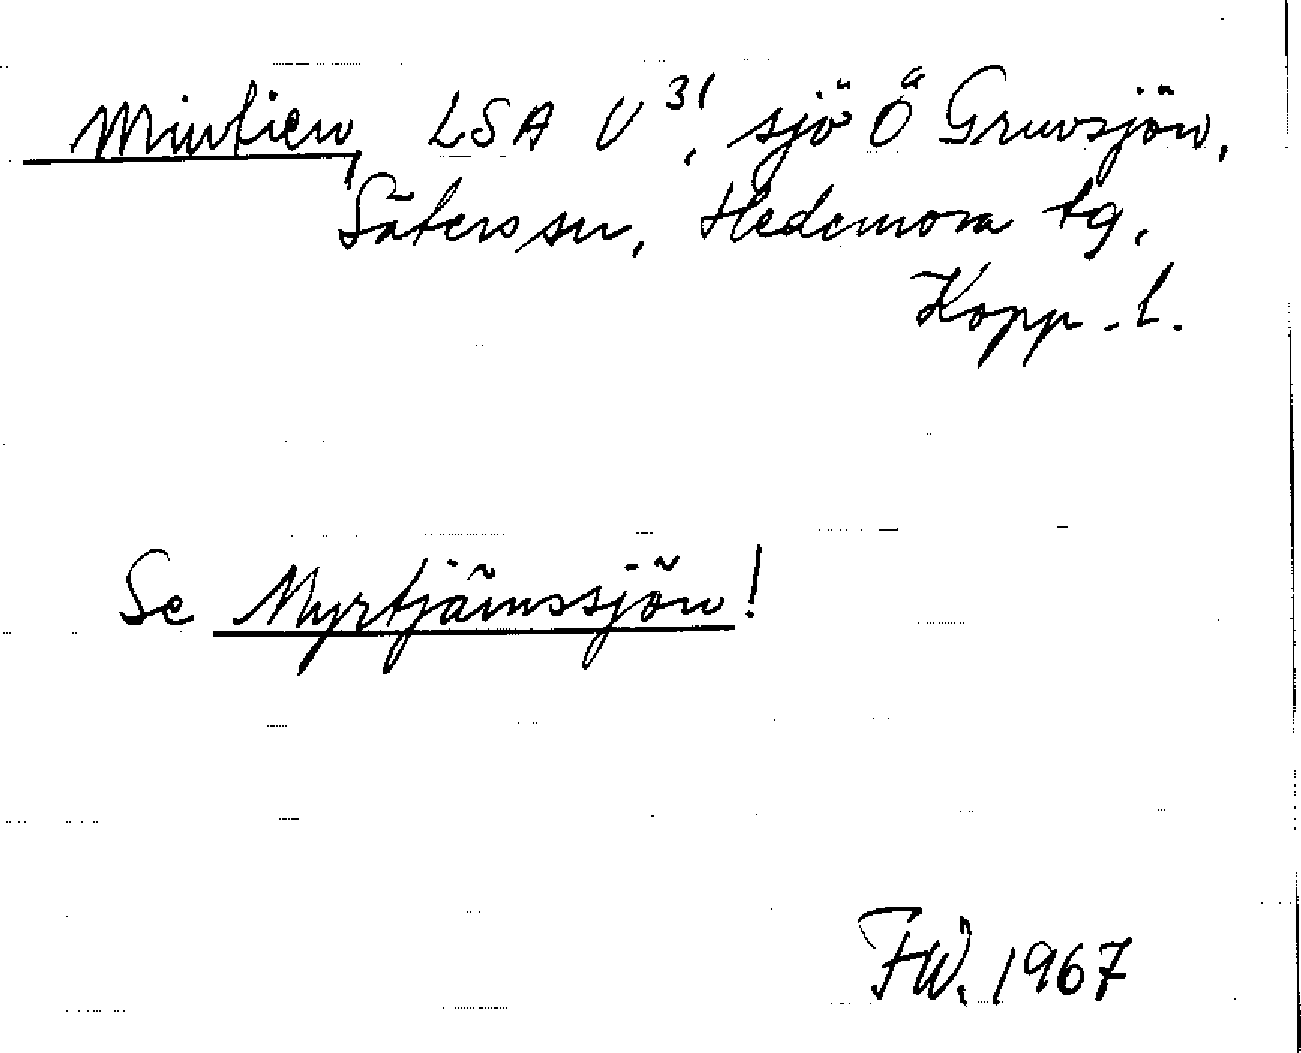 Mintien, LSA U 31, sjö Ö Gruvsjön,
Säters sn, Hedemora tg,
Kopp. l.
Se Myrtjärnssjön!
FW. 1967